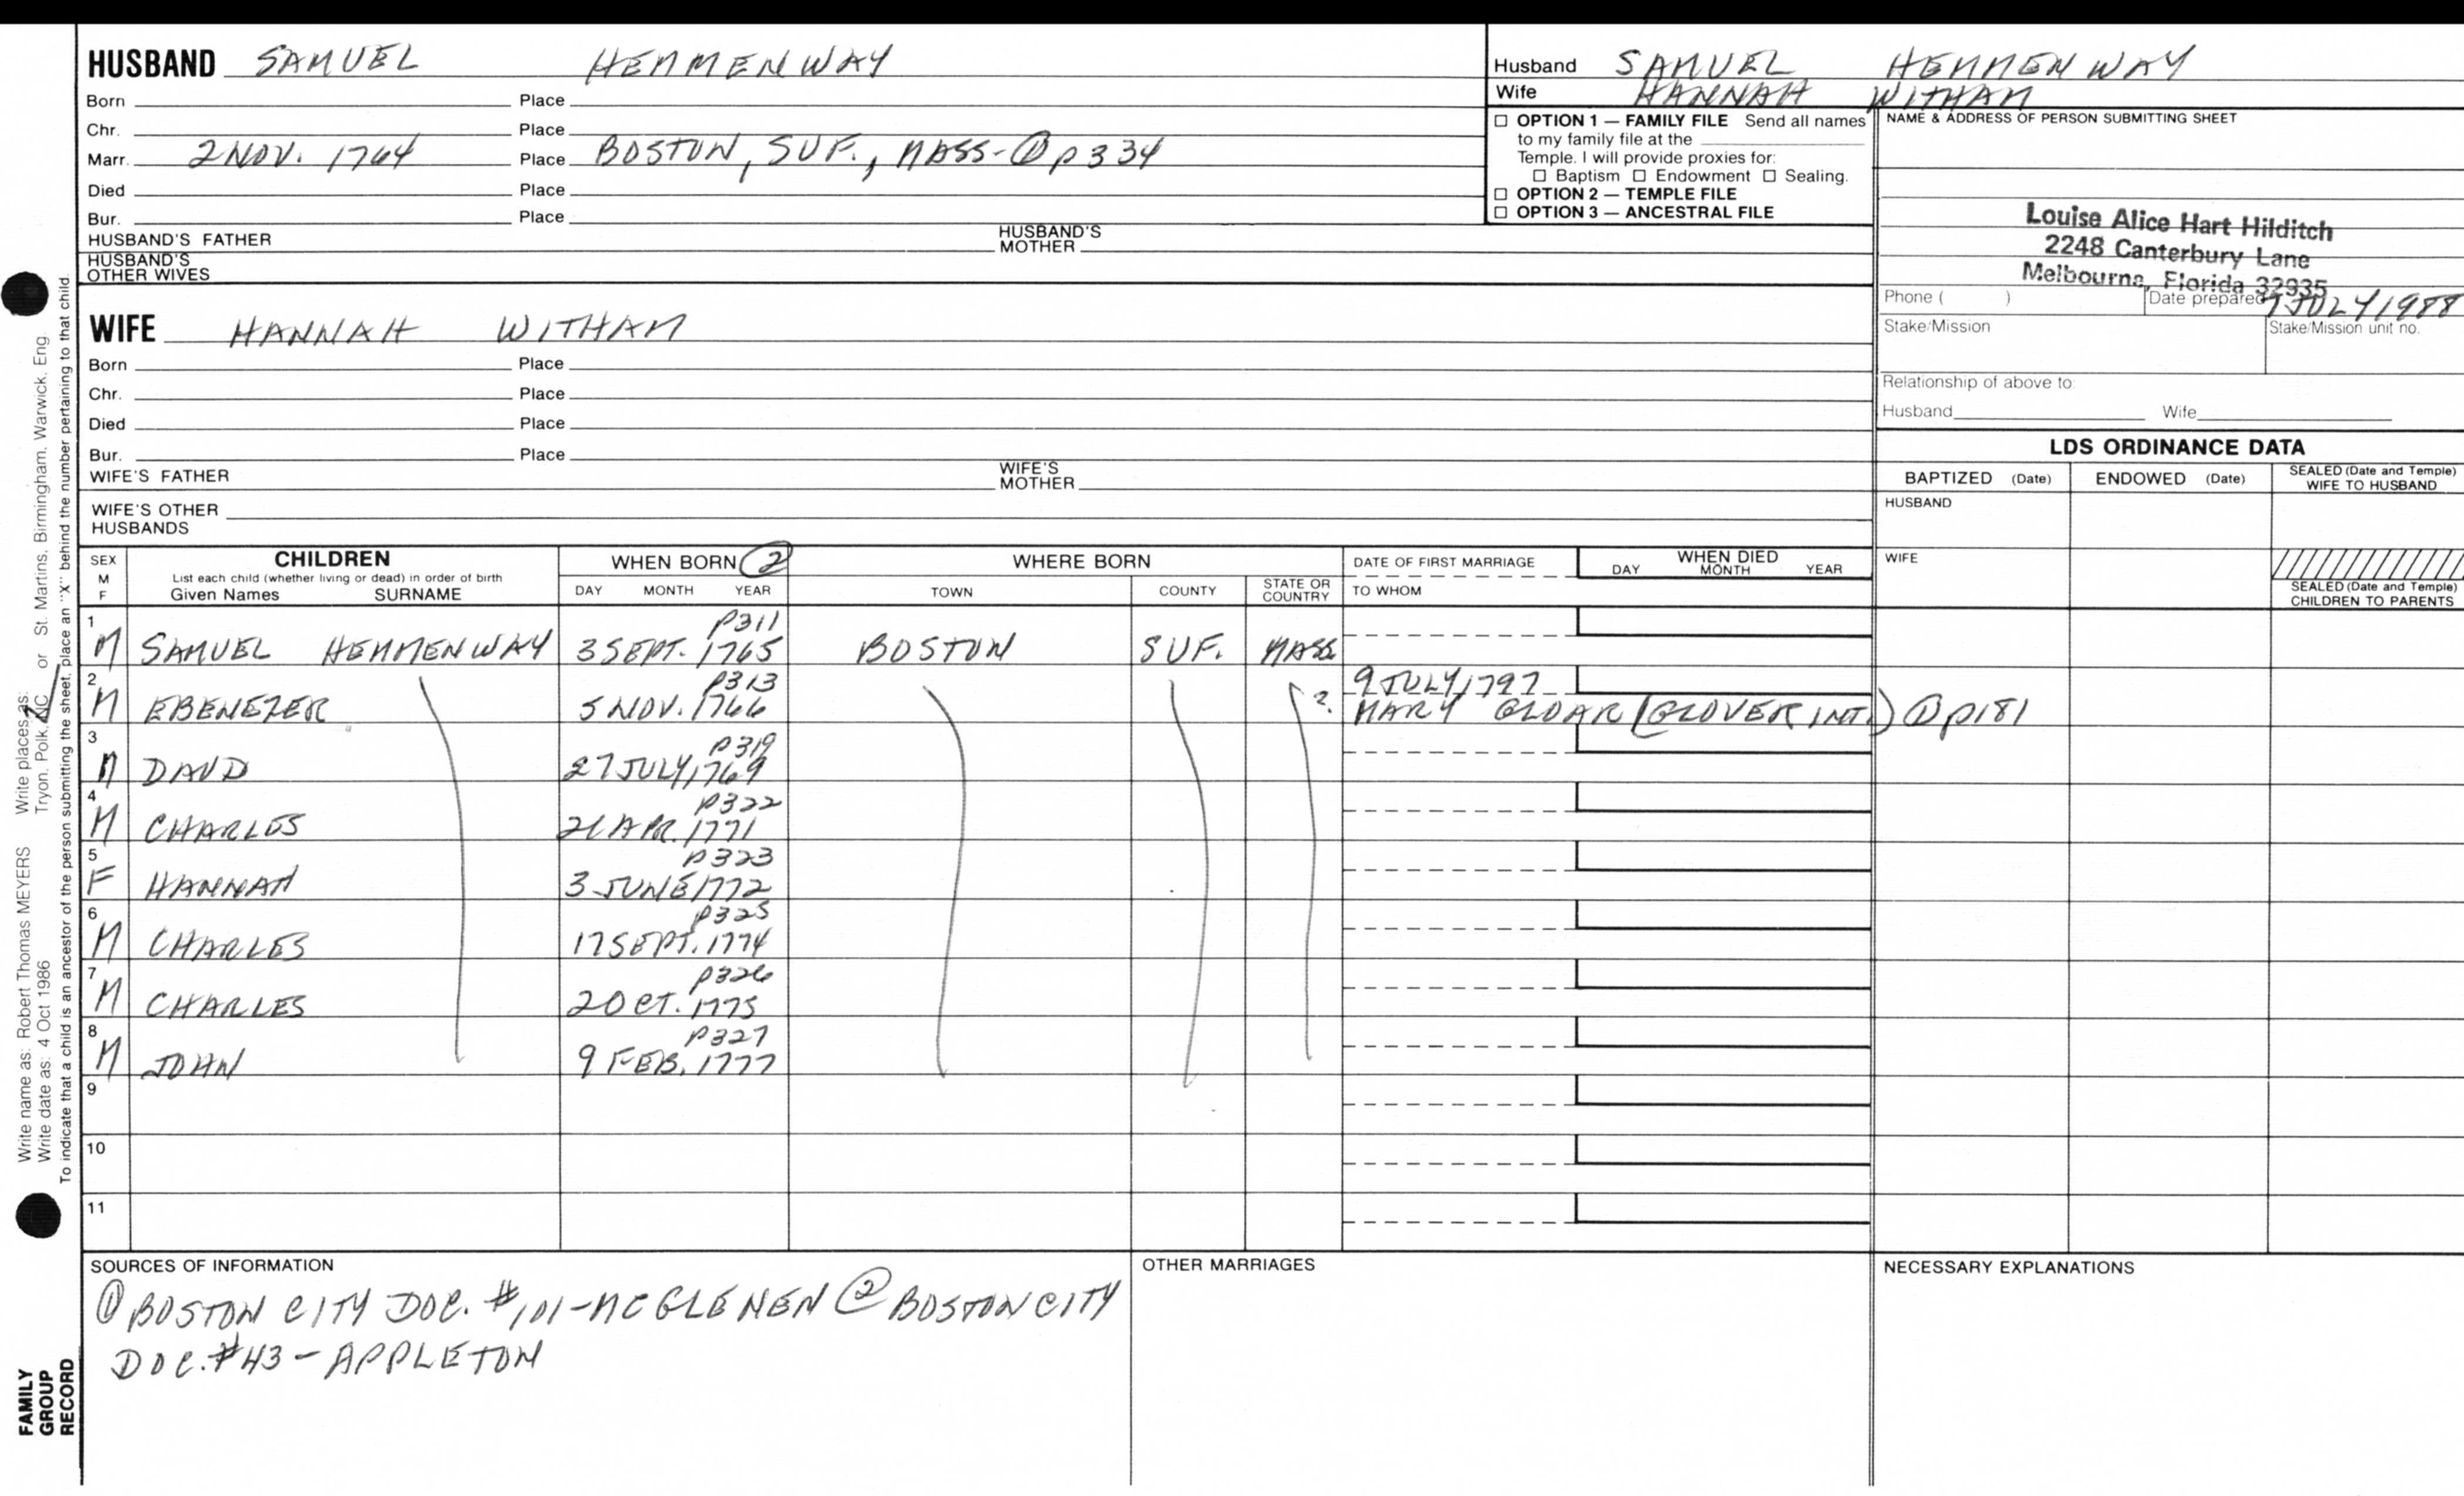 HUSBAND SAMUEL HEMMENWAY
Born Place
Chr. Place
Marr. 2 NOV. 1764 Place BOSTON, SUF., MASS-① p334
Died Place
Bur. Place
HUSBAND'S FATHER HUSBAND'S MOTHER
HUSBAND'S OTHER WIVES
WIFE HANNAH WITHAM
Born Place
Chr. Place
Died Place
Bur. Place
WIFE'S FATHER WIFE'S MOTHER
WIFE'S OTHER HUSBANDS
Husband SAMUEL HEMMENWAY
Wife HANNAH WITHAM
☐ OPTION 1 — FAMILY FILE Send all names
to my family file at the
Temple. I will provide proxies for:
☐ Baptism ☐ Endowment ☐ Sealing.
☐ OPTION 2 — TEMPLE FILE
☐ OPTION 3 — ANCESTRAL FILE
NAME & ADDRESS OF PERSON SUBMITTING SHEET
Louise Alice Hart Hilditch
2248 Canterbury Lane
Melbourne, Florida 32935
Phone ( ) Date prepared JULY 1988
Stake/Mission Stake/Mission unit no.
Relationship of above to:
Husband Wife
LDS ORDINANCE DATA
BAPTIZED (Date) ENDOWED (Date) SEALED (Date and Temple) WIFE TO HUSBAND
HUSBAND
WIFE
SEALED (Date and Temple) CHILDREN TO PARENTS
SEX M F CHILDREN WHEN BORN ② WHERE BORN DATE OF FIRST MARRIAGE WHEN DIED
List each child (whether living or dead) in order of birth
Given Names SURNAME DAY MONTH YEAR TOWN COUNTY STATE OR COUNTRY TO WHOM DAY MONTH YEAR
1 p311
M SAMUEL HEMMENWAY 3 SEPT. 1765 BOSTON SUF. MASS.
2 p313 9 JULY 1797
M EBENEZER 5 NOV. 1766 ? MARY GLOAR (GLOVER INT.) ① p181
3 p319
M DAVD 27 JULY, 1769
4 p322
M CHARLES 21 APR. 1771
5 p323
F HANNAH 3 JUNE 1772
6 p325
M CHARLES 17 SEPT. 1774
7 p326
M CHARLES 2 OCT. 1775
8 p327
M JOHN 9 FEB. 1777
9
10
11
SOURCES OF INFORMATION
① BOSTON CITY DOC. #101-MCGLENEN ② BOSTON CITY
DOC. #43 - APPLETON
OTHER MARRIAGES
NECESSARY EXPLANATIONS
Write name as: Robert Thomas MEYERS Write places as:
Write date as: 4 Oct 1986 Tryon, Polk, NC or St. Martins, Birmingham, Warwick, Eng
To indicate that a child is an ancestor of the person submitting the sheet, place an "X" behind the number pertaining to that child.
FAMILY
GROUP
RECORD